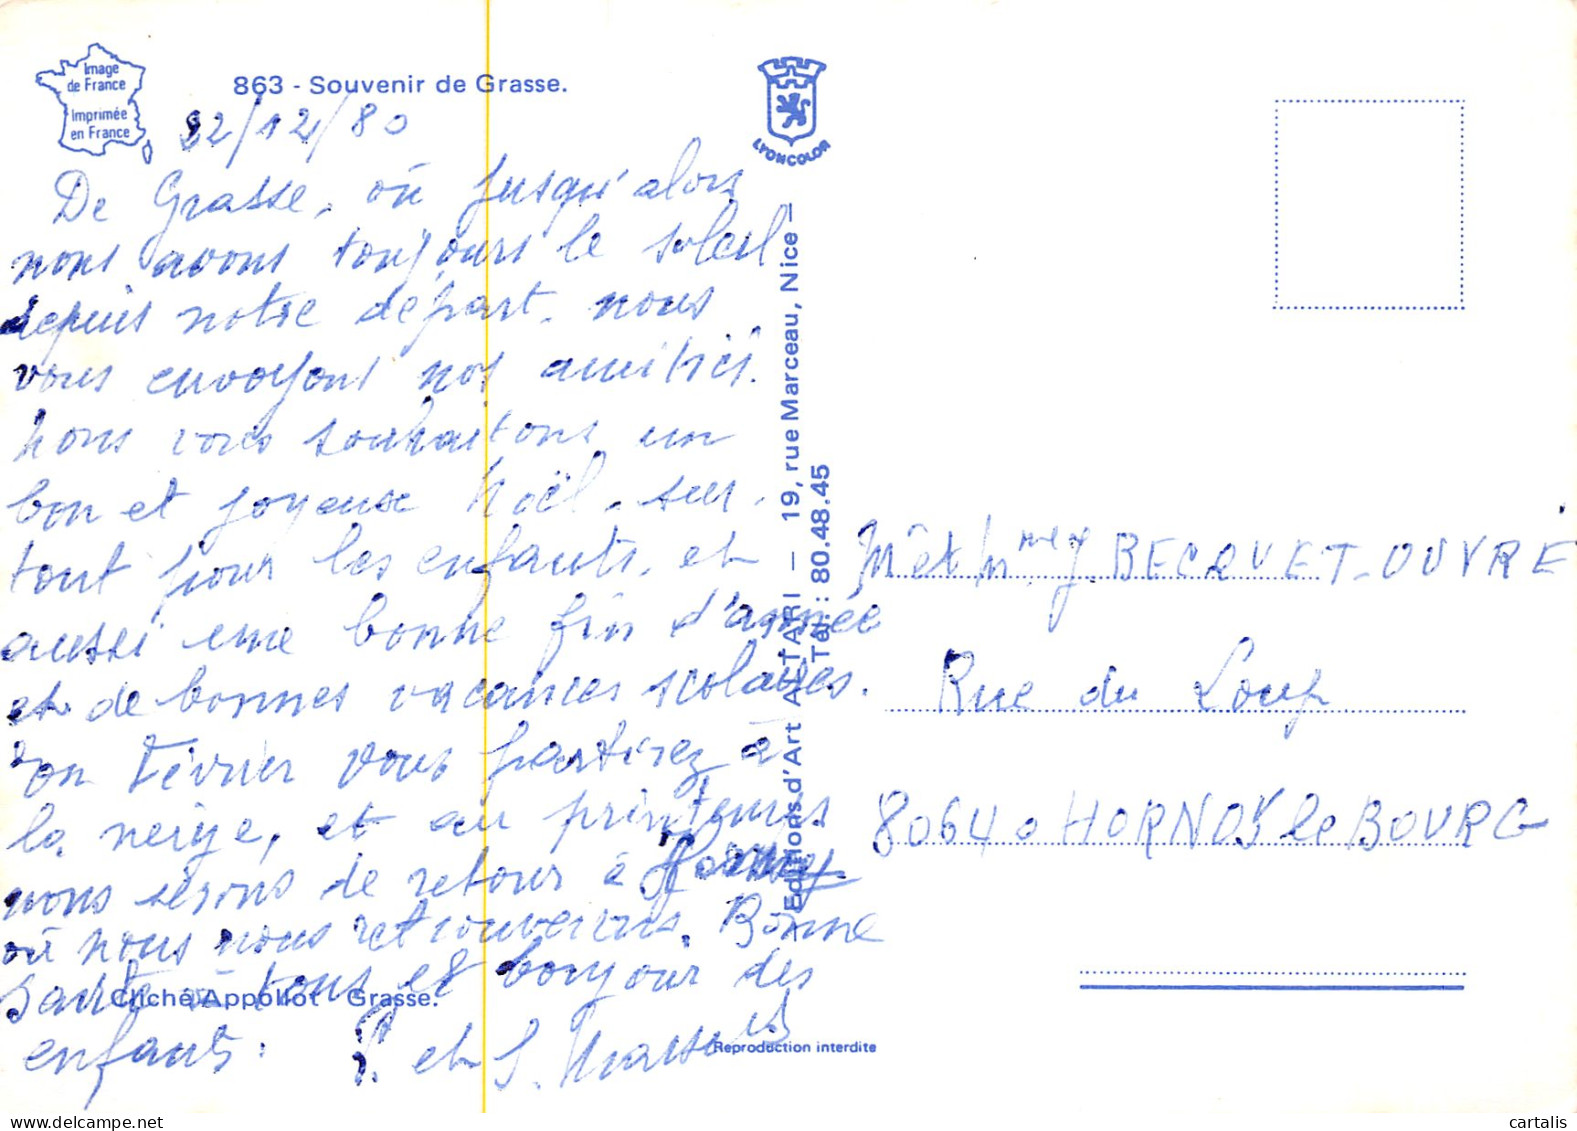 Image
de France
Imprimée
en France
863 - Souvenir de Grasse.
22/12/80
De Grasse, où jusqu'alors
nous avons toujours le soleil
depuis notre départ. nous
vous envoyons nos amitiés.
Nous vous souhaitons un
bon et joyeux Noël. sur-
tout pour les enfants. et
aussi une bonne fin d'année
et de bonnes vacances scolaires.
en Février vous partirez à
la neige, et au printemps
nous serons de retour à Hornoy
où nous nous retrouverons. Bonne
santé à tous et bonjour des
enfants.
P. et S.
Cliché Appollot Grasse.
LYONCOLOR
Editions d'Art ALTARI — 19, rue Marceau, Nice —
Tél. : 80.48.45
Reproduction interdite
Mr et Mme J. BECQUET-OUVRE
Rue du Loup
80640 HORNOY le BOURG
cartalis